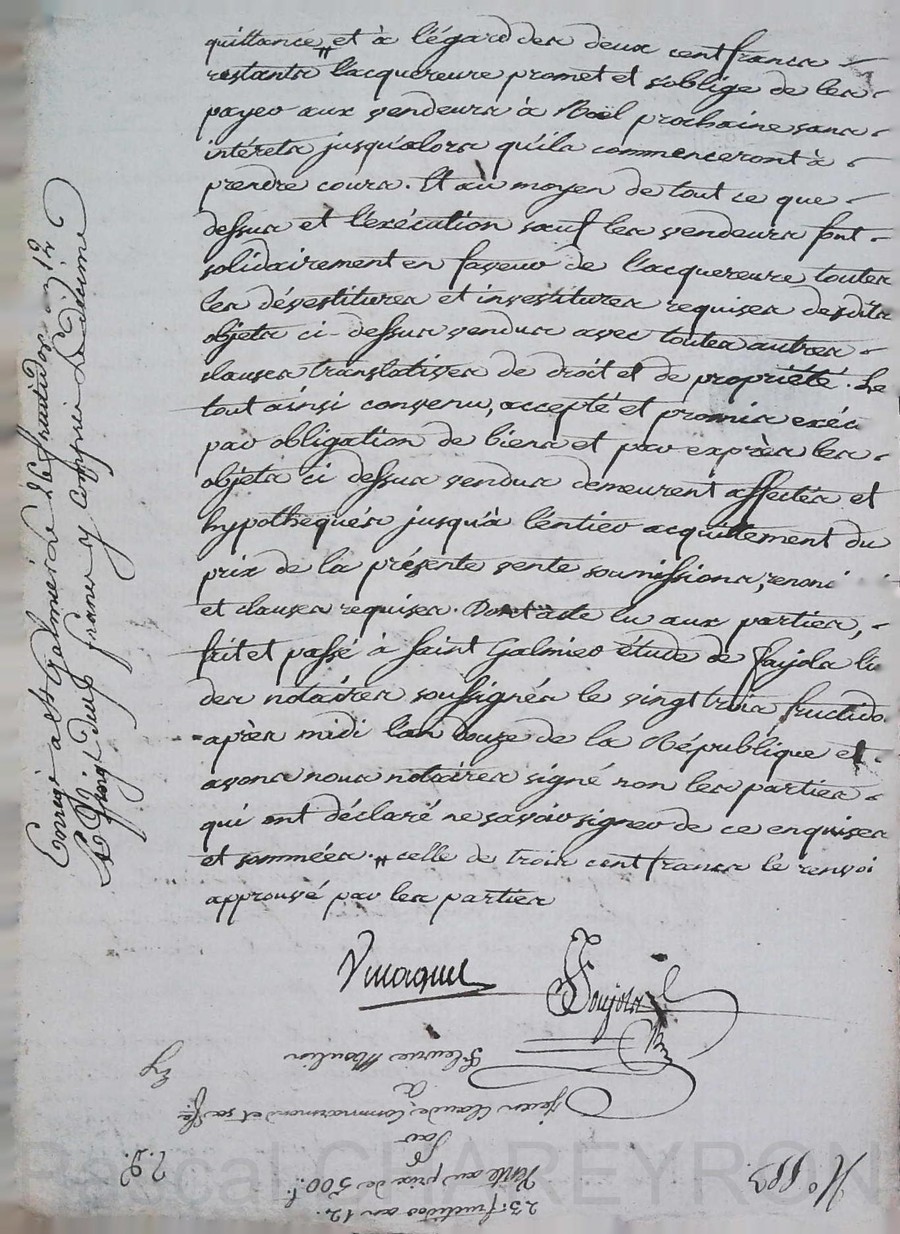 quittance, # et à l'égard des deux cent francs
restants l'acquereure promet et s'oblige de les
payer aux vendeurs à Noël prochaine sans
intérets jusqu'alors qu'ils commenceront à
prendre cours. Et au moyen de tout ce que
dessus et l'exécution sauf les vendeurs font
solidairement en faveur de l'acquereure toutes
les dévestitures et investitures requises desdits
objets ci-dessus vendus avec toutes autres
clauses translatives de droit et de propriété. Le
tout ainsi convenu, accepté et promis exéc
par obligation de biens et par exprès les
objets ci dessus vendus demeurent affectés et
hypothequés jusqu'à l'entier acquittement du
prix de la présente vente soumissions, renonci
et clauses requises. Dont acte lu aux parties,
fait et passé à Saint Galmier étude de Faujola l'u
des notaires soussignés le vingt trois fructido
après midi l'an douze de la République et
avons nous notaires signé non les parties
qui ont déclaré ne savoir signer de ce enquises
et sommées. # celle de trois cent francs le renvoi
approuvé par les parties
Faujola
à St Galmier le fructidor an 12
francs y compris le décime
N° 993
23. fructidor an 12.
Vente au prix de 500f.
par
Jean Claude Commarmond et sa fe
à
Fleurie Moulin